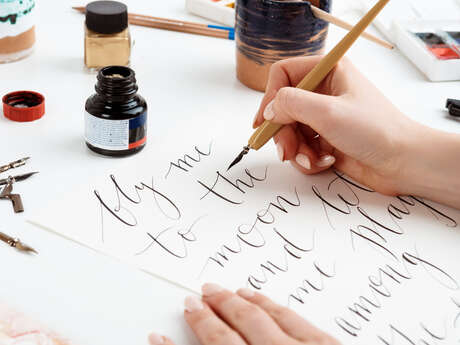 fly me
to the
moon
and let
me play
among
the